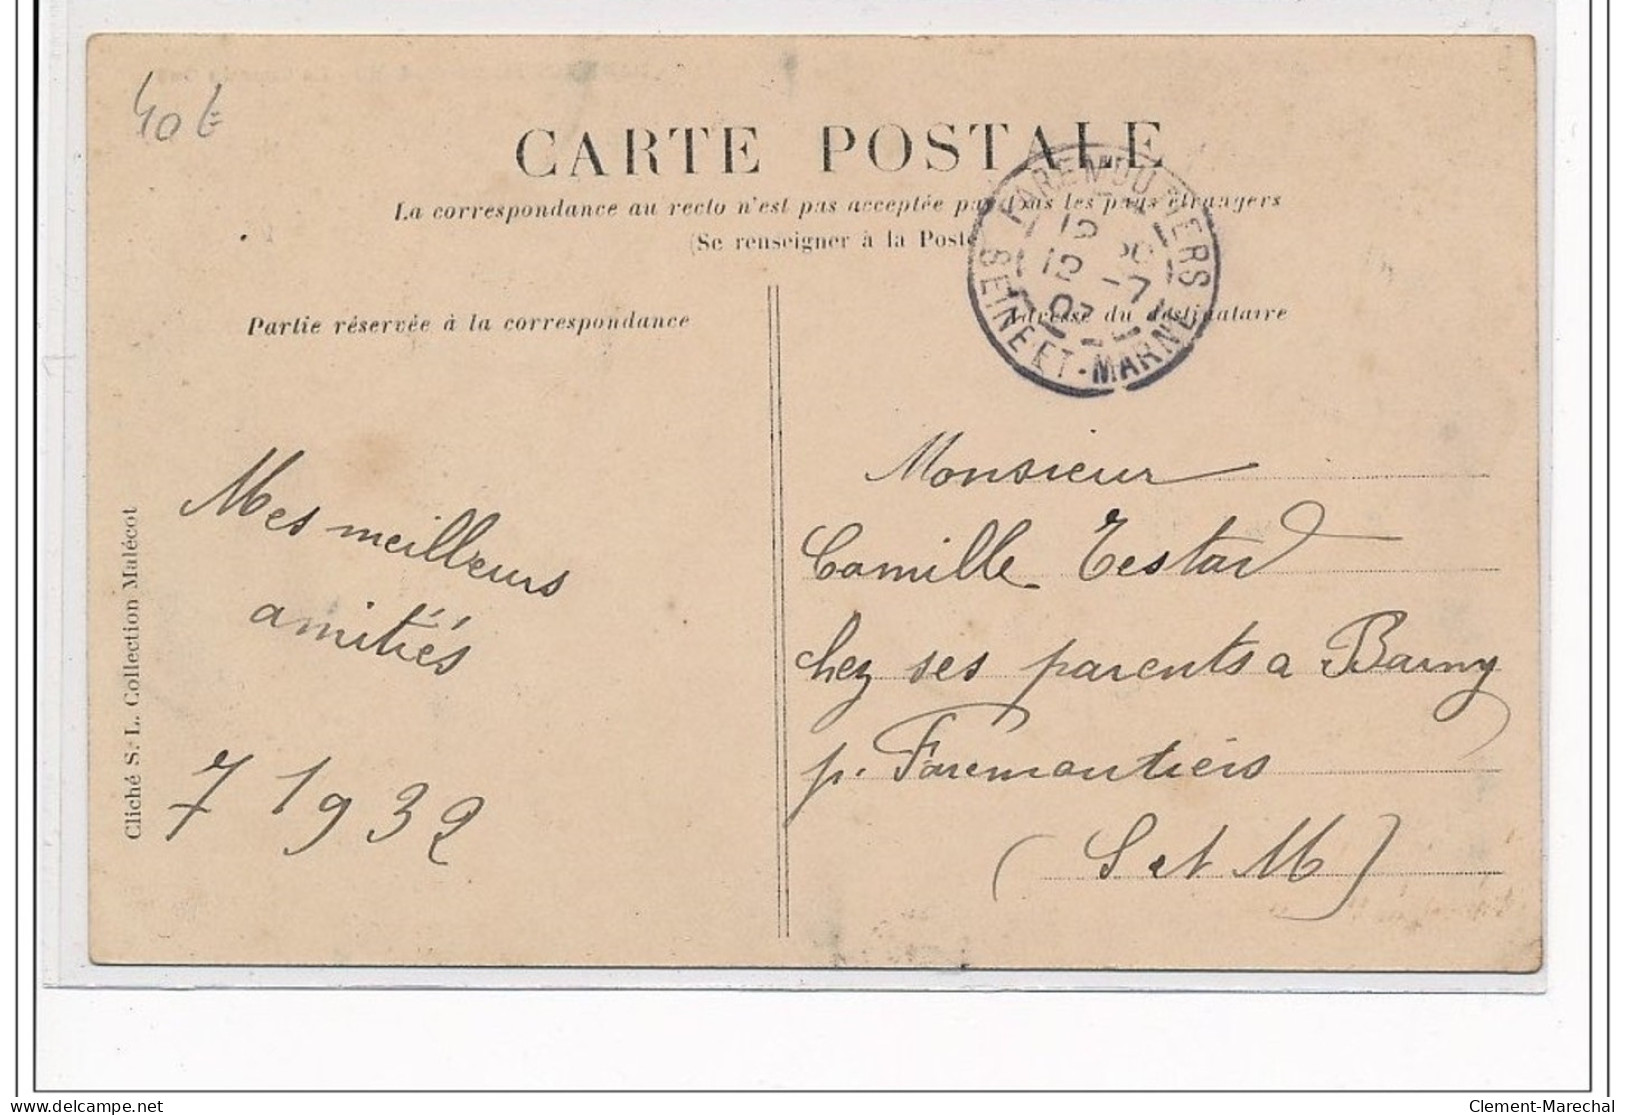 40 €
CARTE POSTALE
La correspondance au recto n'est pas acceptée par tous les pays étrangers
(Se renseigner à la Poste
FAREMOUTIERS
SEINE-ET-MARNE
15
12 -7
07
Partie réservée à la correspondance
Adresse du destinataire
Mes meilleurs
amitiés
7 1932
Cliché S. L. Collection Malécot
Monsieur
Camille Testard
chez ses parents a Barny
p. Faremoutiers
(S et M)
Clement-Marechal